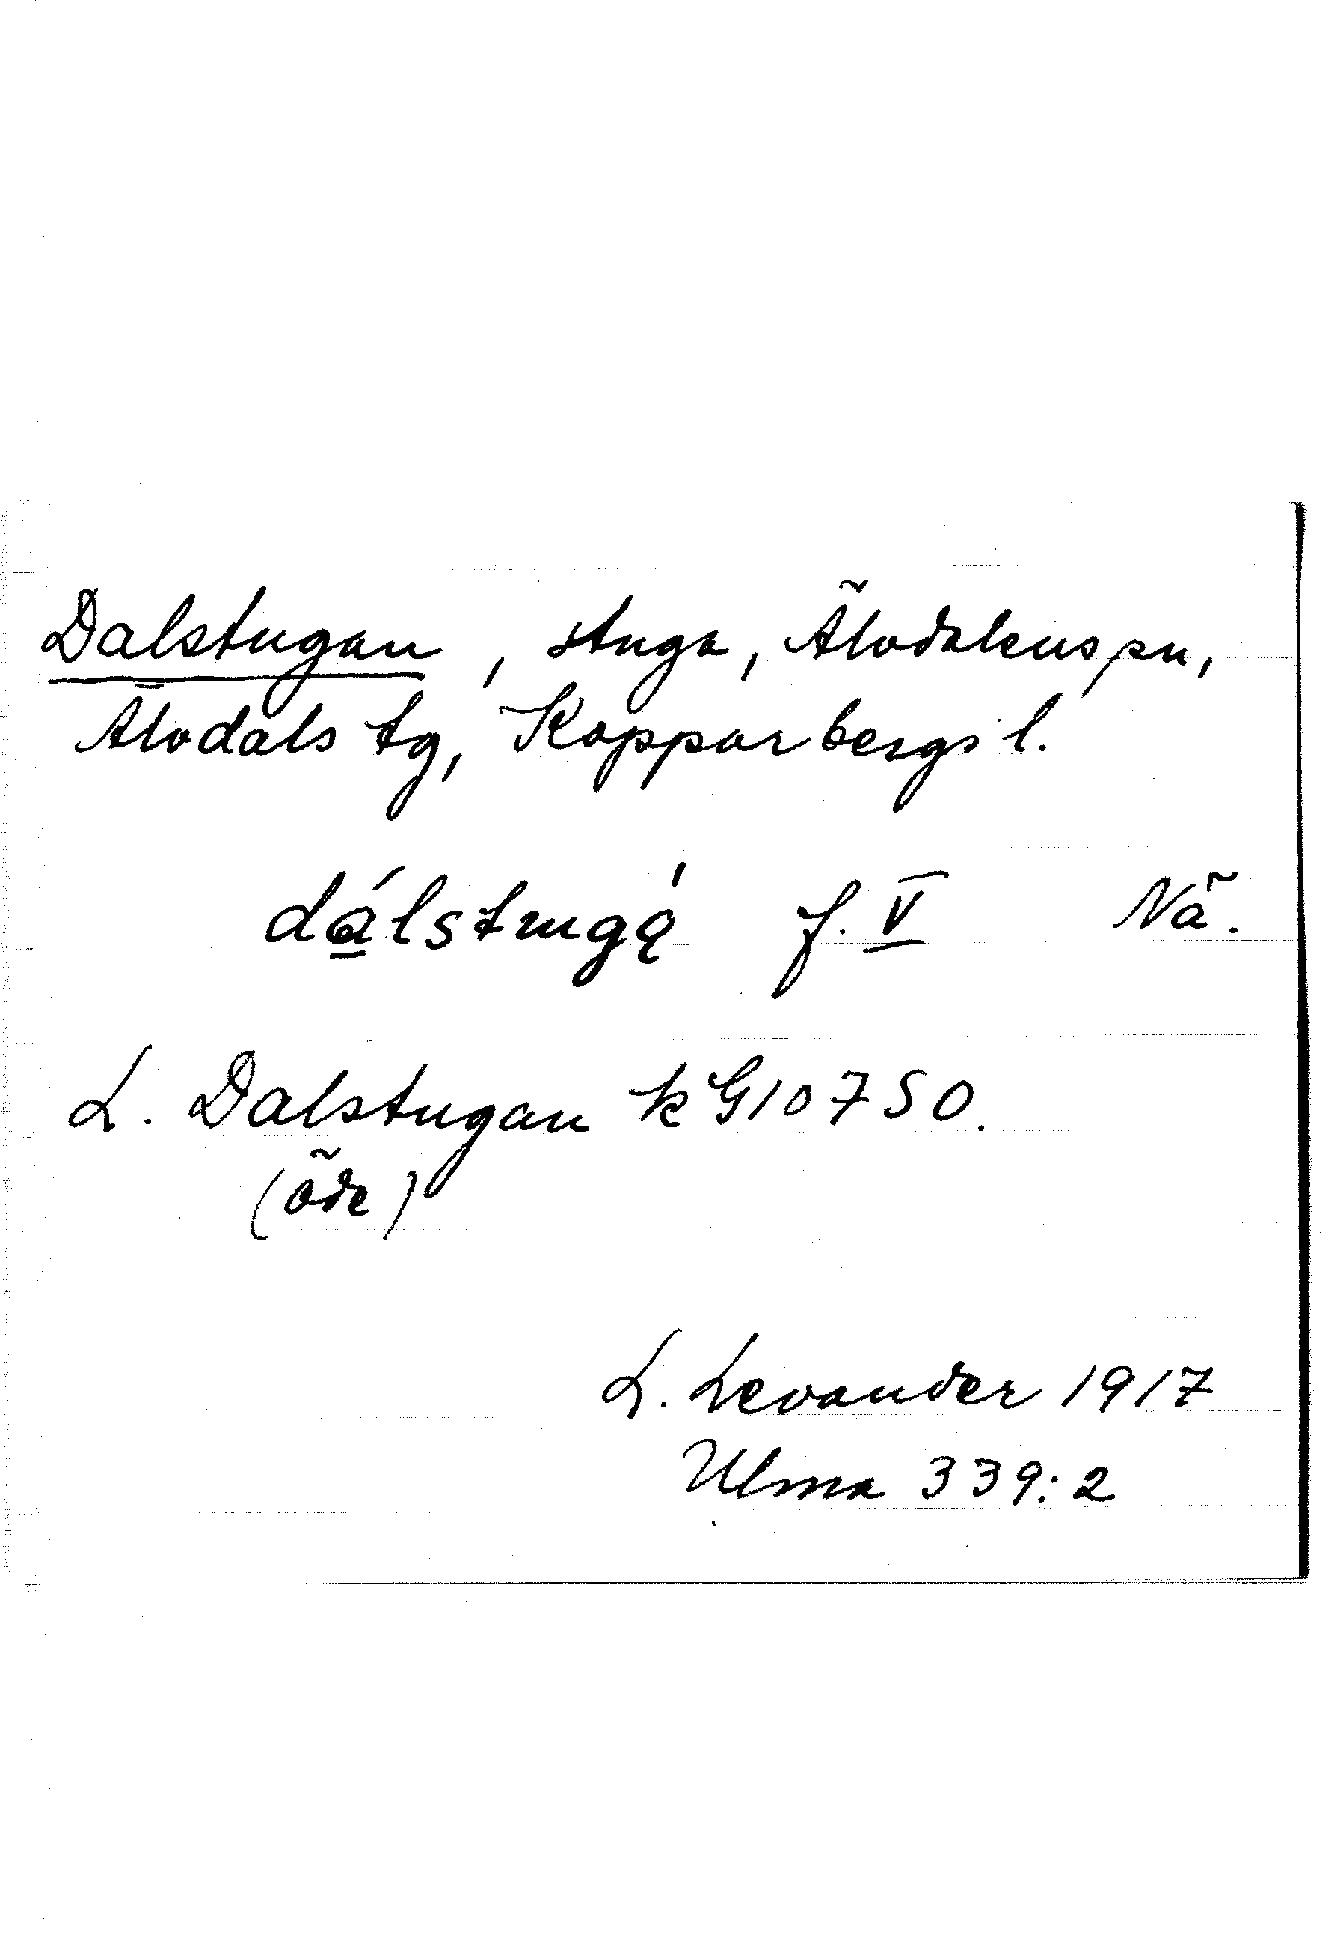 Dalstugan, stuga, Älvdalens sn,
Älvdals tg, Kopparbergs l.
dálstugą̍ f. V Nä.
L. Dalstugan k G10750.
(öde)
L. Levander 1917
Ulma 339:2